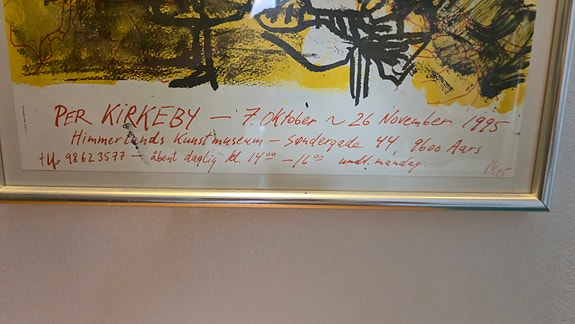 PER KIRKEBY — 7. Oktober ~ 26 November 1995
Himmerlands Kunstmuseum — Søndergade 44 9600 Aars
tlf 98623577 — åbent daglig kl. 14⁰⁰ — 16⁰⁰ undt. mandag